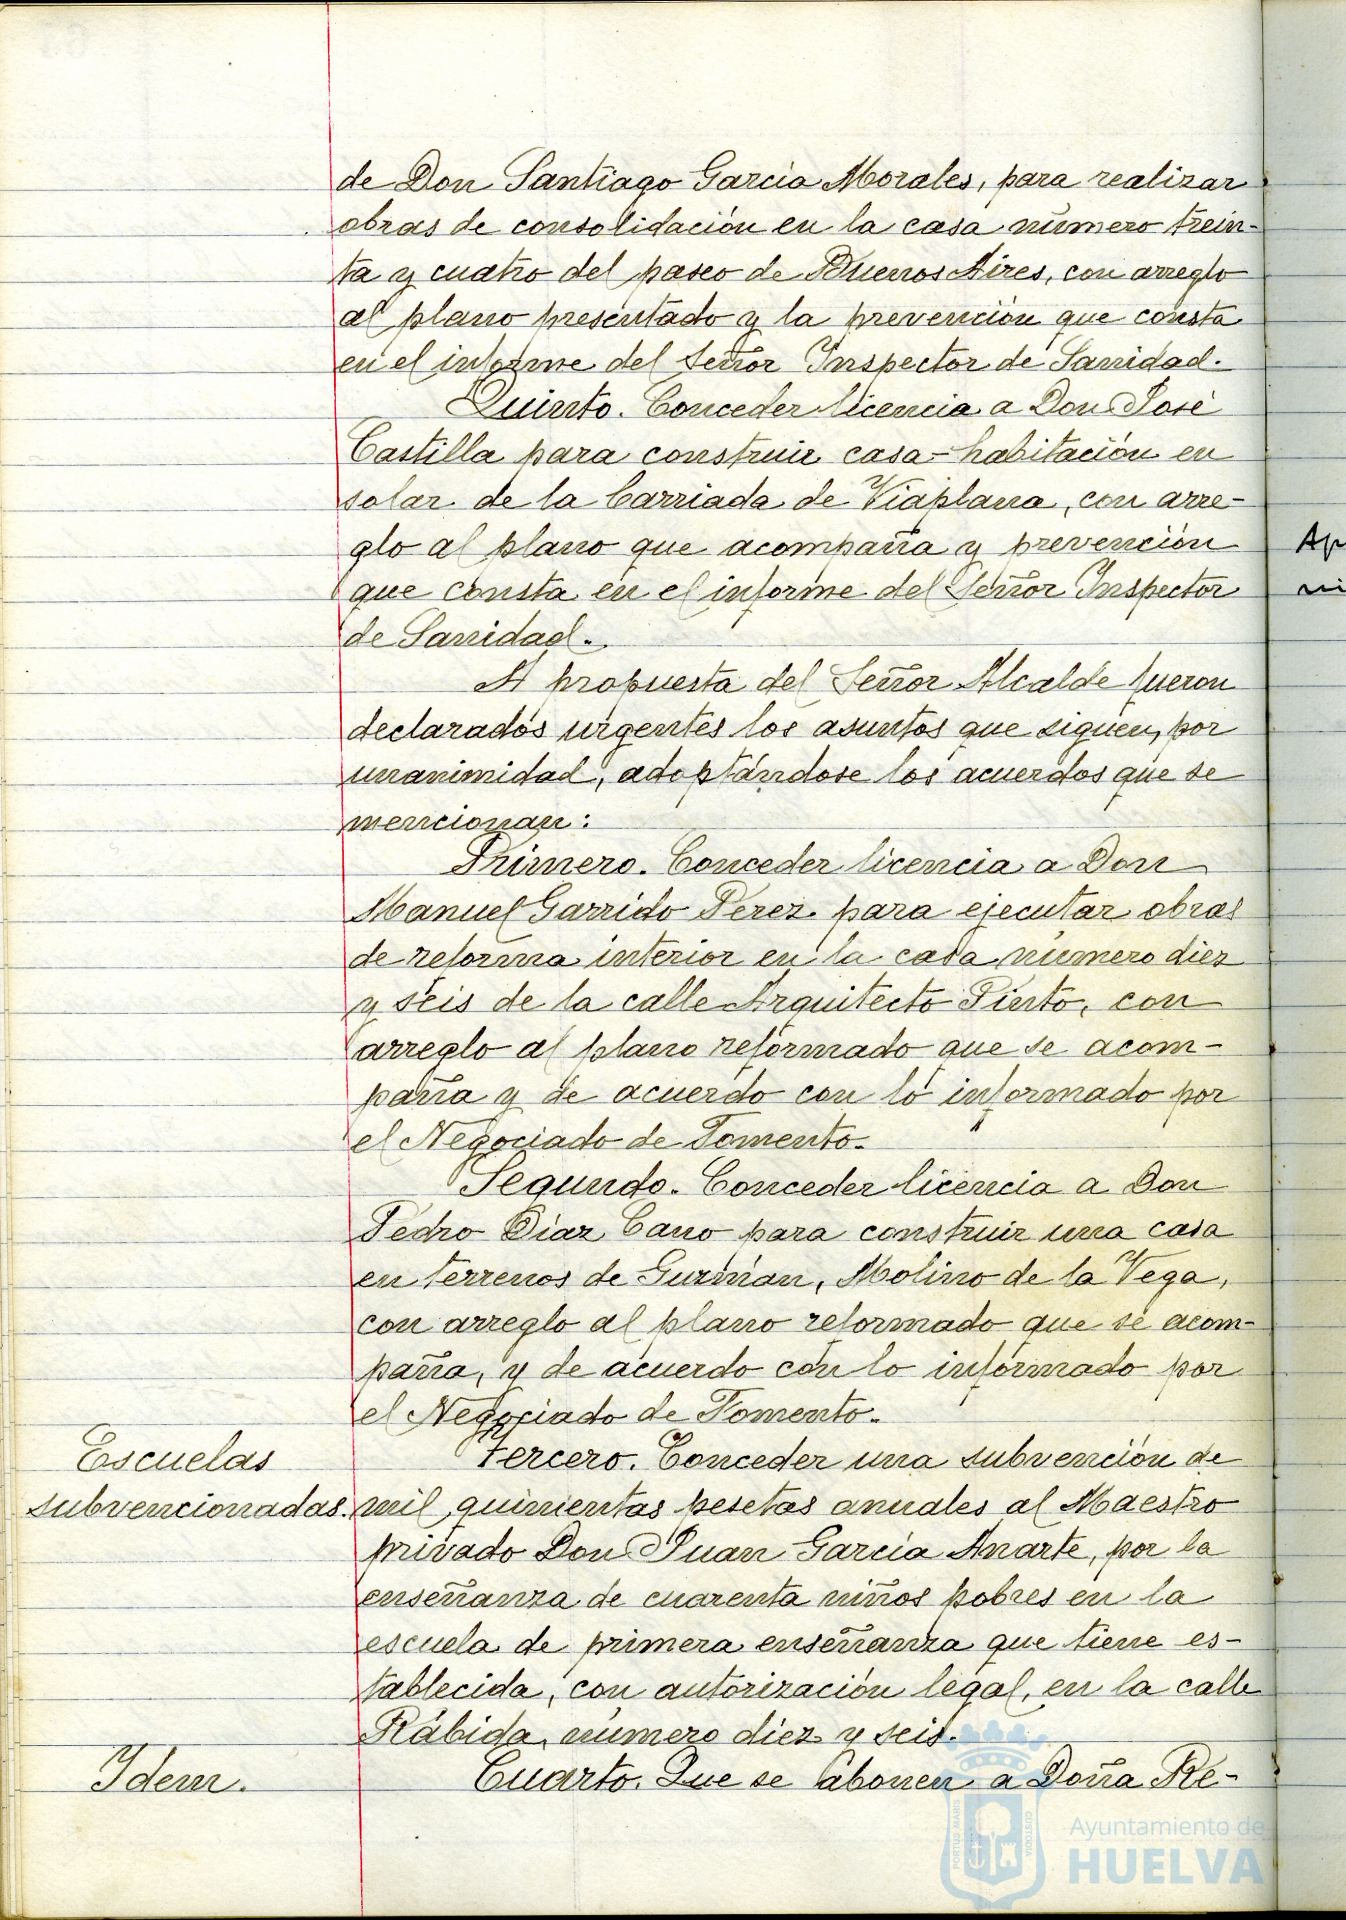 de Don Santiago García Morales, para realizar
obras de consolidación en la casa número trein-
ta y cuatro del paseo de Buenos Aires, con arreglo
al plano presentado y la prevención que consta
en el informe del Señor Inspector de Sanidad.
Quinto. Conceder licencia a Don José
Castilla para construir casa-habitación en
solar de la barriada de Viaplana, con arre-
glo al plano que acompaña y prevención
que consta en el informe del Señor Inspector
de Sanidad.
A propuesta del Señor Alcalde fueron
declarados urgentes los asuntos que siguen, por
unanimidad, adoptándose los acuerdos que se
mencionan:
Primero. Conceder licencia a Don
Manuel Garrido Perez para ejecutar obras
de reforma interior en la casa número diez
y seis de la calle Arquitecto Pinto, con
arreglo al plano reformado que se acom-
paña y de acuerdo con lo informado por
el Negociado de Fomento.
Segundo. Conceder licencia a Don
Pedro Díaz Cano para construir una casa
en terrenos de Guzmán, Molino de la Vega,
con arreglo al plano reformado que se acom-
paña, y de acuerdo con lo informado por
el Negociado de Fomento.
Escuelas
subvencionadas.
Tercero. Conceder una subvención de
mil quinientas pesetas anuales al Maestro
privado Don Juan García Anarte, por la
enseñanza de cuarenta niños pobres en la
escuela de primera enseñanza que tiene es-
tablecida, con autorización legal, en la calle
Rábida, número diez y seis.
Idem.
Cuarto. Que se abonen a Doña Re-
Ap
ni
PORTUS MARIS
CUSTODIA
Ayuntamiento de
HUELVA